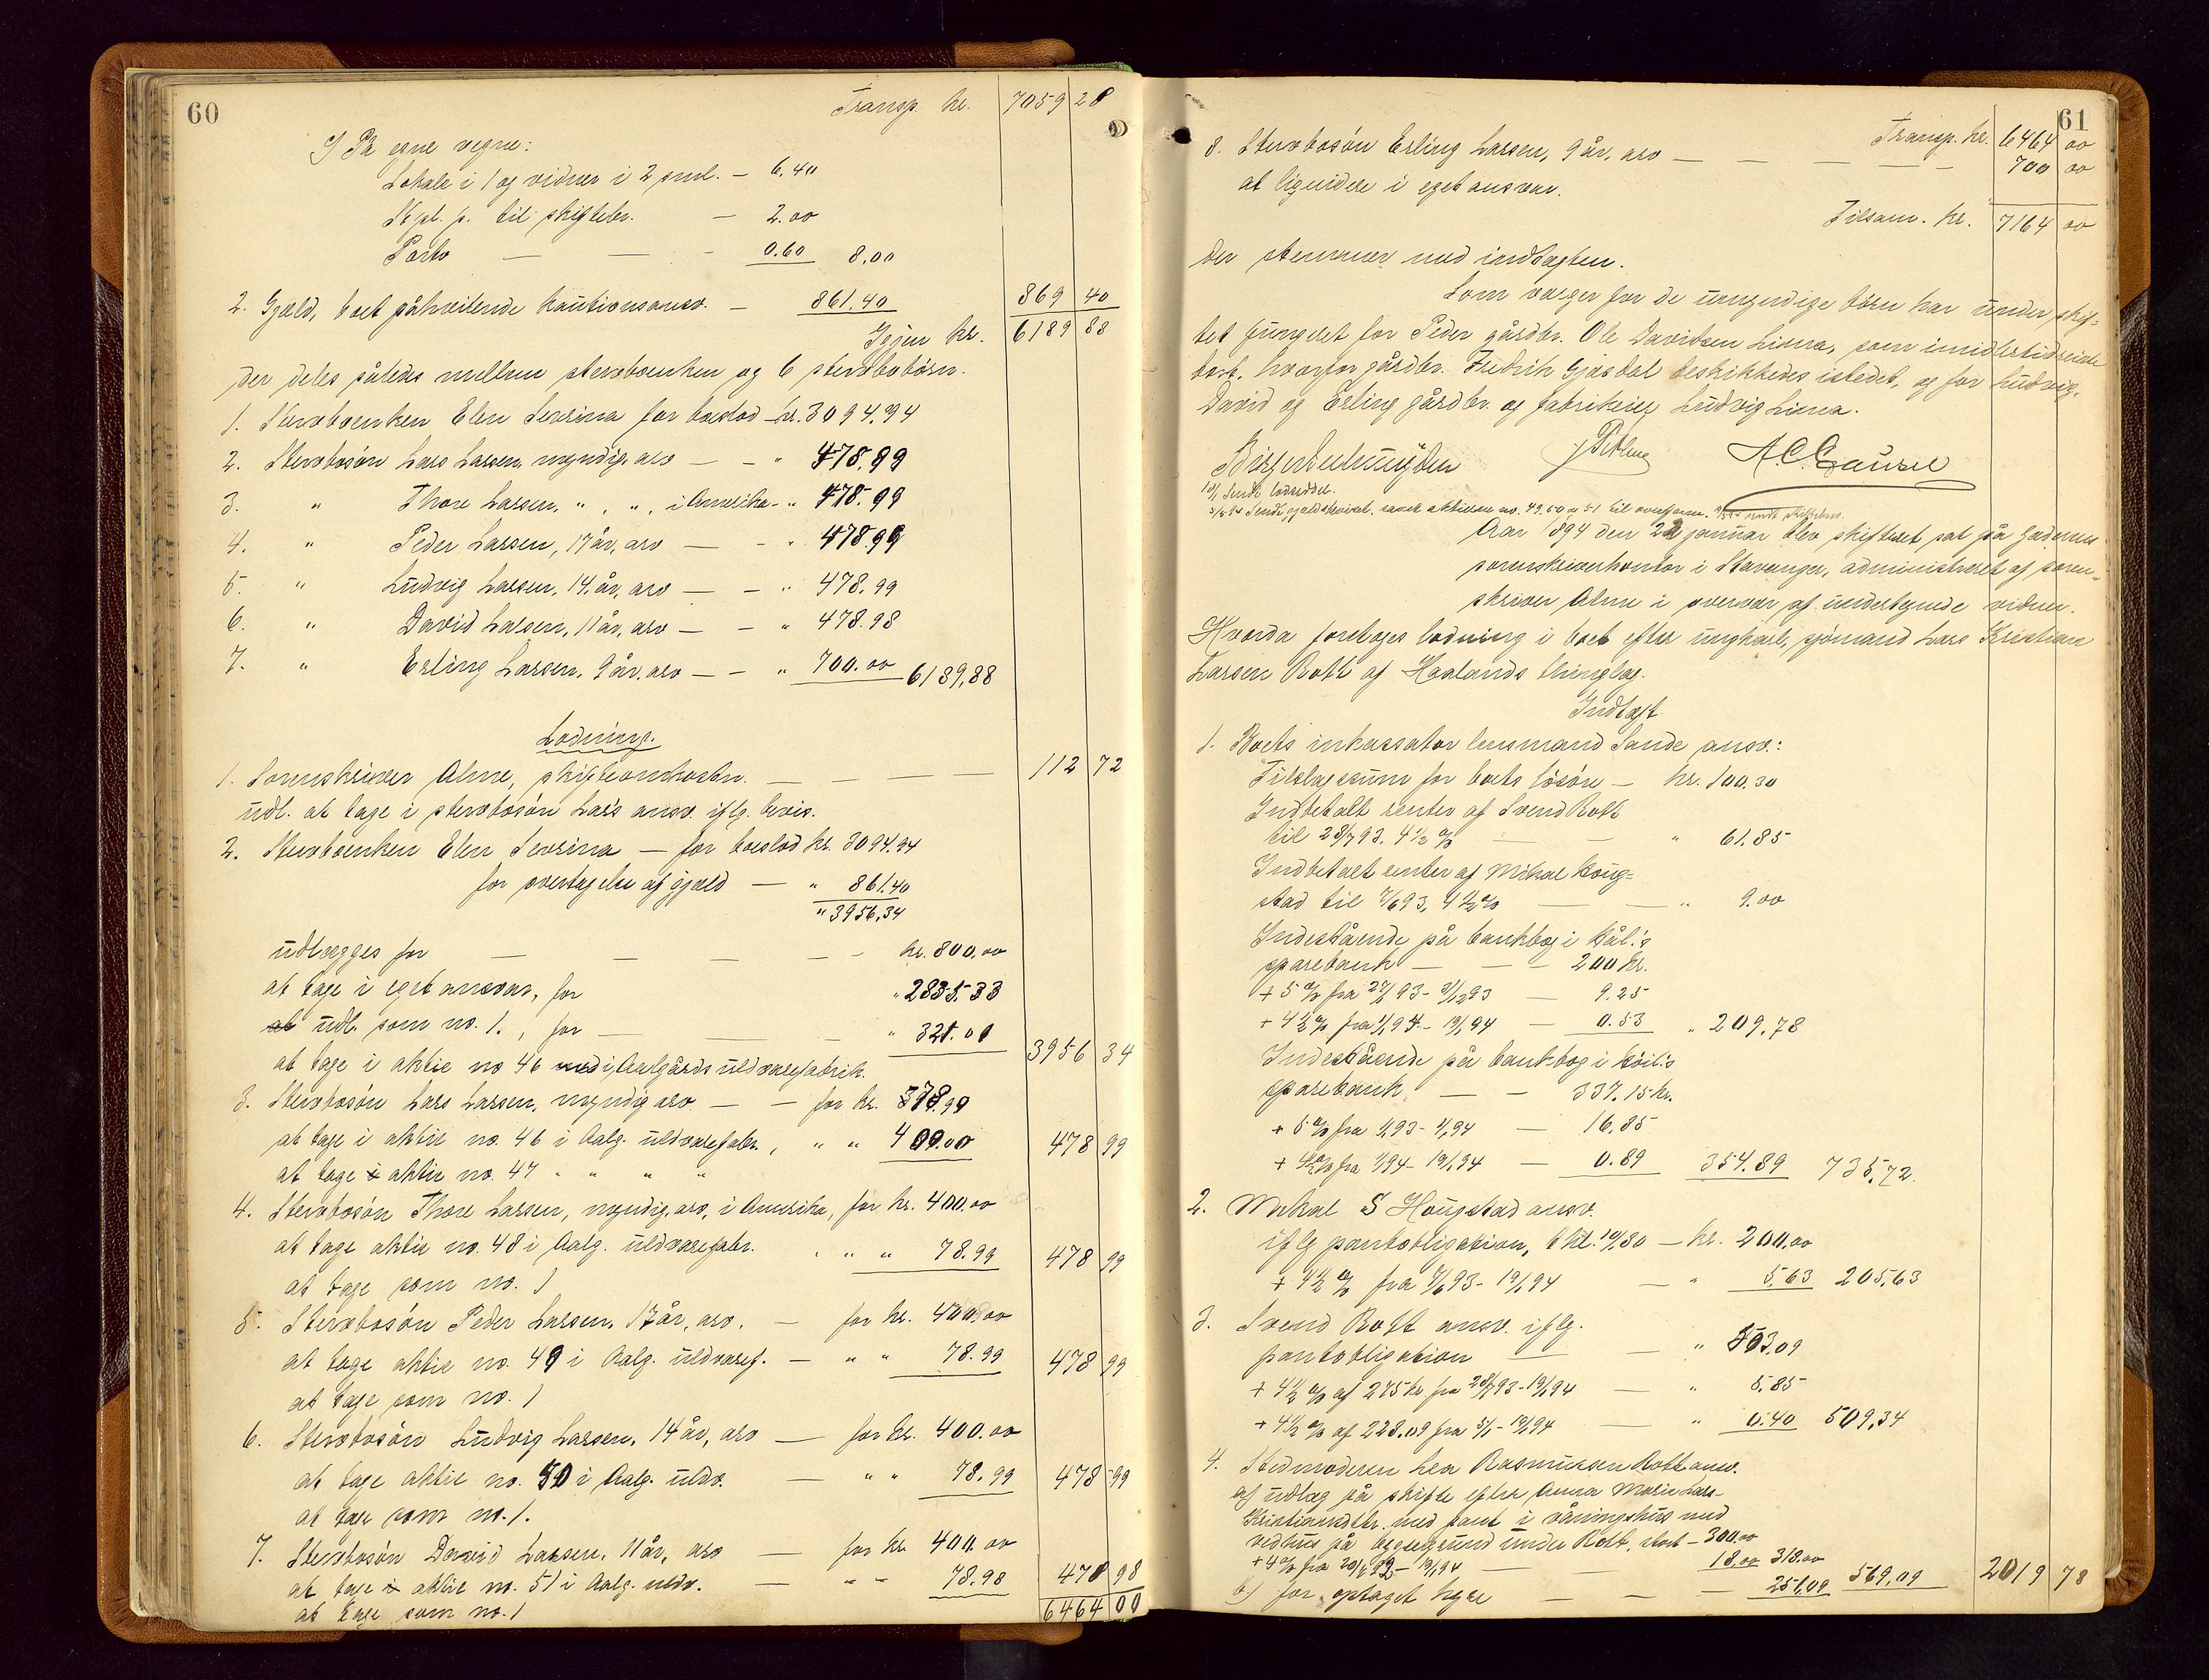 60
Transp. kr. 7059 28
I På egne vegne:
Lokale i 1 og vidner i 2 sml. — 6.40
Stpl. p. til skiftebr. — 2.00
Porto — — - 0.60 8.00
2. Gjæld, boet påhvilende kautionsansv. — 861.40 869 40
Igjen kr. 6189 88
der deles således mellem stervboenken og 6 stervbobörn.
1. Stervboenken Elen Severina for boeslod — kr. 3094.94
2. Stervbosön Lars Larsen, myndig, arv — - " 478.99
3. " Thore Larsen, " , " , i Amerika - " 478.99
4. " Peder Larsen, 17 år, arv — - " 478.99
5. " Ludvig Larsen, 14 år, arv — - " 478.99
6. " David Larsen, 11 år, arv — - " 478.98
7. " Erling Larsen, 9 år, arv — - " 700.00 6189,88
Lodning.
1. Sorenskriver Alme, skifteomkostn. — — — — 112 72
udl. at tage i stervbosön Lars ansv. iflg. bevis.
2. Stervboenken Elen Severina — for boeslod kr. 3094.94
for overtagelse af gjæld — " 861.40
" 3956,34
udlægges for — — — — kr. 800,00
at tage i eget ansvar, for " 2835.33
at udl. som no. 1., for — " 321.01 3956 34
at tage i aktie no 46 i Aalgårds uldvarefabrik.
3. Stervbosön Lars Larsen, myndig arv — — for kr. 378,99
at tage i aktie no. 46 i Aalg. uldvarefabr., " " 100.00 478 99
at tage i aktie no. 47 " " " "
4. Stervbosön Thore Larsen, myndig, arv, i Amerika, for kr. 400.00
at tage aktie no. 48 i Aalg. uldvarefabr. " " 78.99 478 99
at tage som no. 1
5. Stervbosön Peder Larsen, 17 år, arv. — for kr. 400.00
at tage aktie no. 49 i Aalg. uldvaref. — " " 78.99 478 99
at tage som no. 1
6. Stervbosön Ludvig Larsen, 14 år, arv — for kr. 400.00
at tage aktie no. 50 i Aalg. uldv. — " " 78.99 478 99
at tage som no. 1.
7. Stervbosön David Larsen, 11 år, arv — for kr 400.00
at tage i aktie no. 51 i Aalg. uldv. — " " 78.98 478 98
at tage som no. 1 6464 00
61
Transp. kr. 6464 00
8. Stervbosön Erling Larsen, 9 år, arv — — — — 700 00
at liquidere i eget ansvar.
Tilsam. kr. 7164 00
der stemmer med indtægten.
Som værger for de umyndige börn har under skif-
tet fungeret for Peder gårdbr. Ole Davidsen Lima, som imidlertid reiste
bort, hvorfor gårdbr. Fredrik Gjesdal beskikkedes istedet, og for Ludvig,
David og Erling gårdbr. og fabrikeier Ludvig Lima.
A. C. Gausel
Aar 1894 den 22 januar blev skifteret sat på Jæderens
sorenskriverkontor i Stavanger, administreret af soren-
skriver Alme i overvær af undertegnede vidner.
Hvorda foretoges lodning i boet efter ungkarl, sjömand Lars Kristian
Larsen Rott af Haalands thinglag.
Indtægt
1. Boets inkassator lensmand Sande ansv.:
Tilslagssum for boets lösöre — kr. 100.30
Indbetalt renter af Svend Rott
til 28/7 93. 4½ % — — " 61.85
Indbetalt renter af Mikal Houg-
stad til 7/6 93, 4½ % — — " 9.00
Indestående på bankbog i Hål.'s
sparebank — — — 200 kr.
+ 5 % fra 27/1 93 - 31/12 93 — 9.25
+ 4½ % fra 1/1 94 - 19/1 94 — 0.53 " 209,78
Indestående på bankbog i Höil.'s
sparebank — — 337.15 kr.
+ 5 % fra 1/1 93 - 1/1 94 — 16.85
+ 4½ % fra 1/1 94 - 19/1 94 — 0.89 354.89 735,72
2. Mikal S Hougstad ansv.
iflg pantobligation, thl. 19/1 80 — kr. 200,00
+ 4½ % fra 7/6 93 - 19/1 94 — " 5,63 205,63
3. Svend Rott ansv. iflg.
pantobligation — — " 503,09
+ 4½ % af 275 kr. fra 28/7 93 - 19/1 94 — " 5.85
+ 4½ % af 228.09 fra 5/1 - 19/1 94 — " 0.40 509,34
4. Stedmoderen Lea Rasmussen Rott ansv.
af udlæg på skifte efter Anna Marie Lars-
Kristiansdtr. med pant i våningshus med
vedhus på byggegrund under Rott, stort — 300.00
+ 4 % fra — 19/1 94 — — 18.00 318.00
b) for optaget hyre — — — 251,09 569,09 2019 78